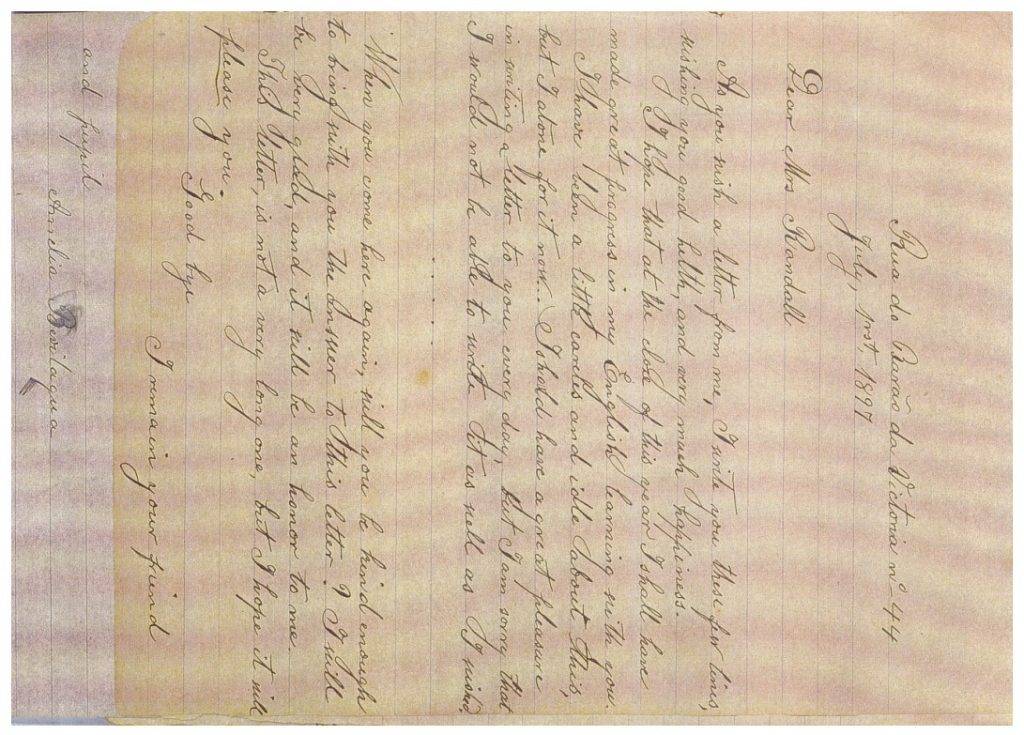 Rua do Barão da Victoria nº 44
July, 1rst. 1897
Dear Mrs Randall
As you wish a letter from me, I write you these few lines,
wishing you good helth, and very much happiness.
I hope that at the close of this year I shall have
made great progress in my English learning with you.
I have been a little careles and idle about this,
but I atone for it now. I shold have a great pleasure
in writing a letter to you every day, but I am sorry that
I would not be able to write it as well as I wish.
When you come here again, will you be kind enough
to bring with you the answer to this letter? I will
be very glad, and it will be an honor to me.
This letter, is not a very long one, but I hope it will
please you.
Good bye
I remain your friend
and pupil
Amelia Bevilaqua